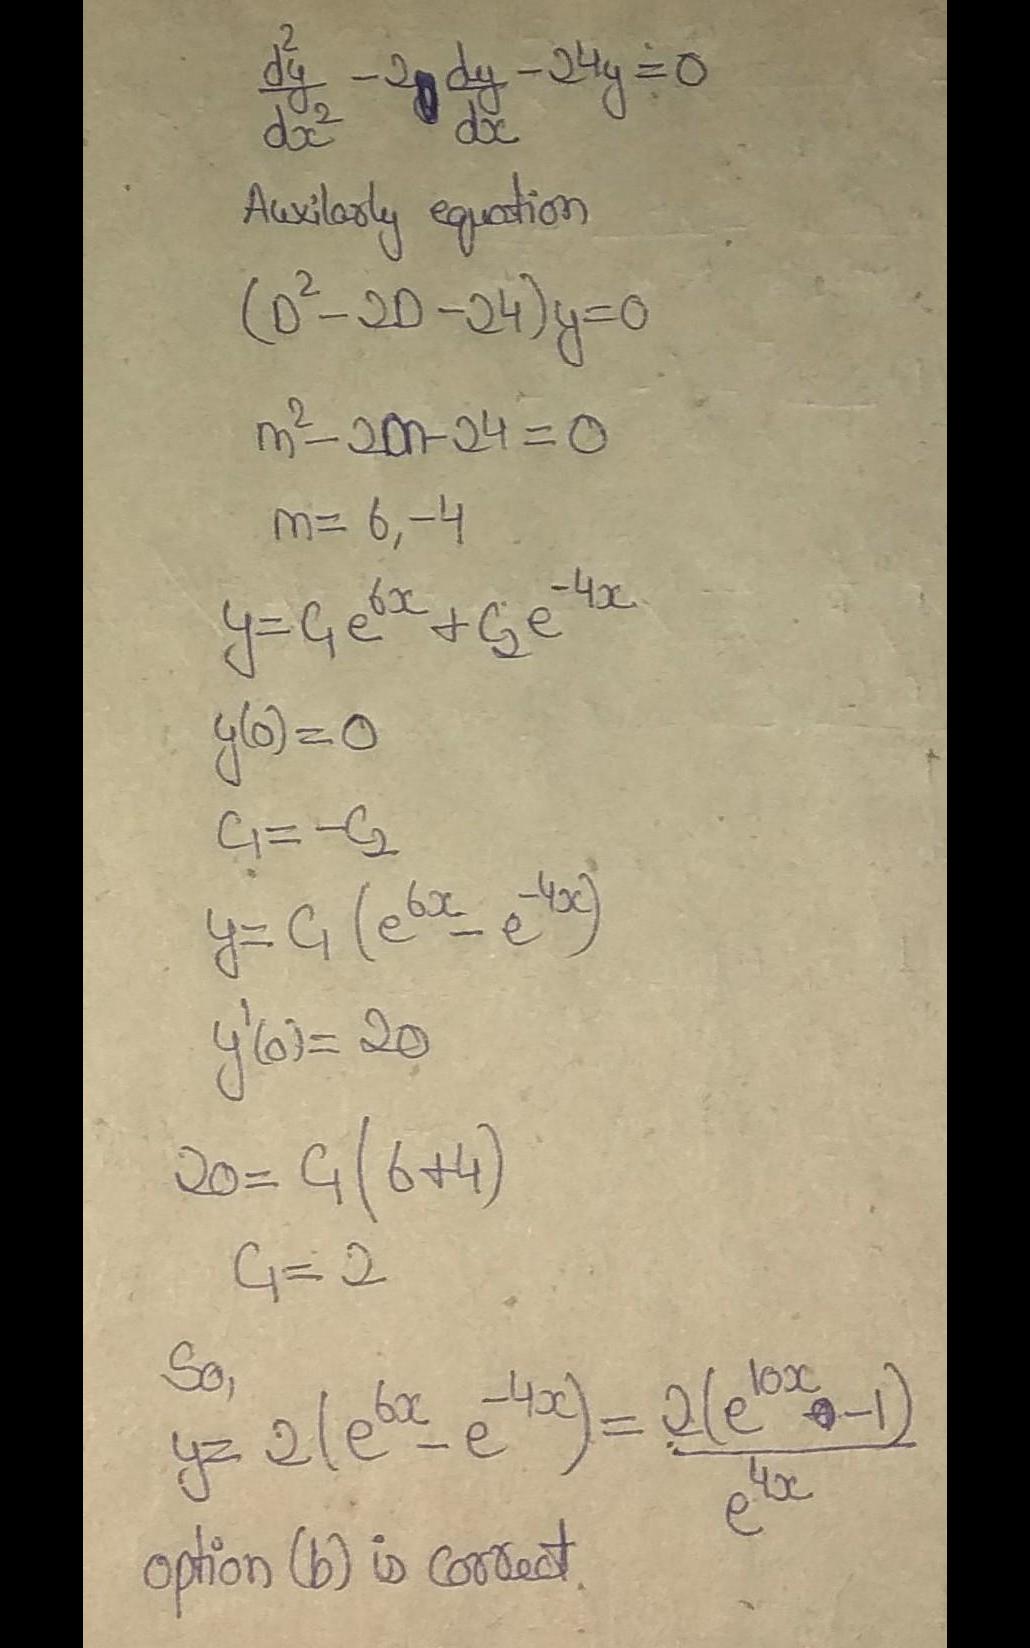 d²y/dx² - 2 dy/dx - 24y = 0
Auxilarly equation
(D² - 2D - 24)y = 0
m² - 2m - 24 = 0
m = 6, -4
y = C₁e^{6x} + C₂e^{-4x}
y(0) = 0
C₁ = -C₂
y = C₁(e^{6x} - e^{-4x})
y'(0) = 20
20 = C₁(6+4)
C₁ = 2
So,
y = 2(e^{6x} - e^{-4x}) = 2(e^{10x} - 1)/e^{4x}
option (b) is correct.